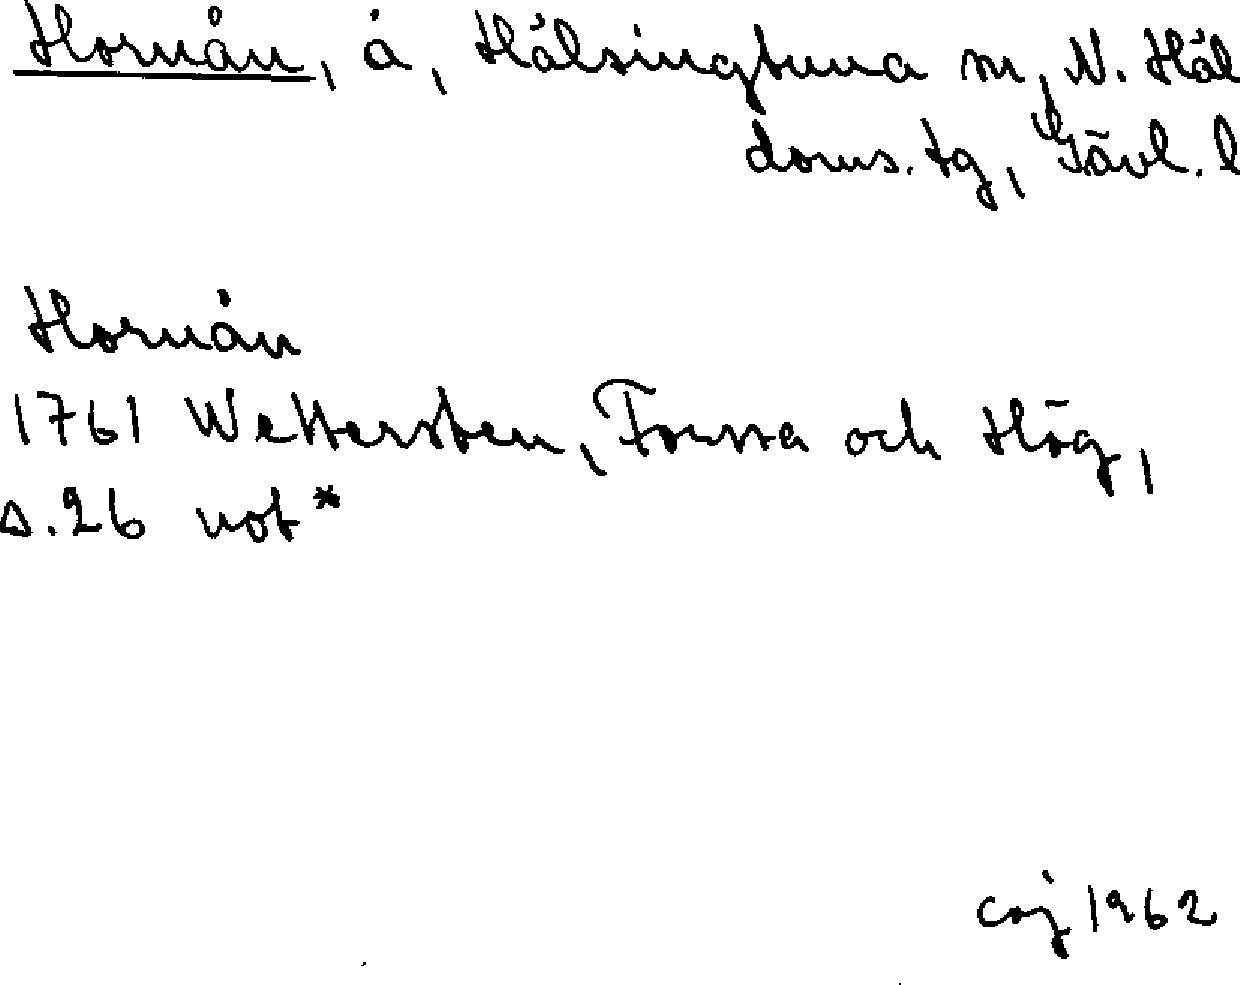 Hornån, å, Hälsingtuna sn, N. Häl
doms. tg, Gävl. l
Hornån
1761 Wettersten, Forssa och Hög,
s. 26 not*
coj 1962